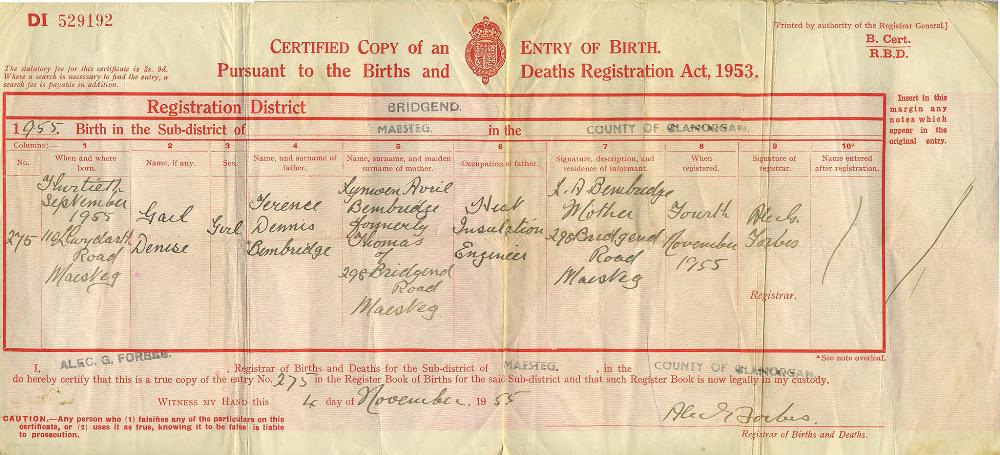 DI 529192
[Printed by authority of the Registrar General.]
B. Cert.
R.B.D.
CERTIFIED COPY of an ENTRY OF BIRTH.
Pursuant to the Births and Deaths Registration Act, 1953.
The statutory fee for this certificate is 3s. 9d.
Where a search is necessary to find the entry, a
search fee is payable in addition.
Insert in this
margin any
notes which
appear in the
original entry.
Registration District BRIDGEND.
1955. Birth in the Sub-district of MAESTEG. in the COUNTY OF GLAMORGAN.
Columns:— 1 2 3 4 5 6 7 8 9 10*
No. When and where born. Name, if any. Sex. Name, and surname of father. Name, surname, and maiden surname of mother. Occupation of father. Signature, description, and residence of informant. When registered. Signature of registrar. Name entered after registration.
275
Thirtieth
September
1955
Road
Maesteg
Gail
Denise
Girl
Terence
Dennis
Bembridge
Avril
Bembridge
formerly
Thomas
of
298 Bridgend
Road
Maesteg
Insulation
Engineer
Bembridge
Mother
298 Bridgend
Road
Maesteg
Fourth
November
1955
Alec G.
Forbes
Registrar.
*See note overleaf.
I, ALEC. G. FORBES. , Registrar of Births and Deaths for the Sub-district of MAESTEG. , in the COUNTY OF GLAMORGAN.
do hereby certify that this is a true copy of the entry No. 275 in the Register Book of Births for the said Sub-district and that such Register Book is now legally in my custody.
WITNESS MY HAND this 4 day of November, 1955
CAUTION.—Any person who (1) falsifies any of the particulars on this
certificate, or (2) uses it as true, knowing it to be false is liable
to prosecution.
Alec G Forbes.
Registrar of Births and Deaths.